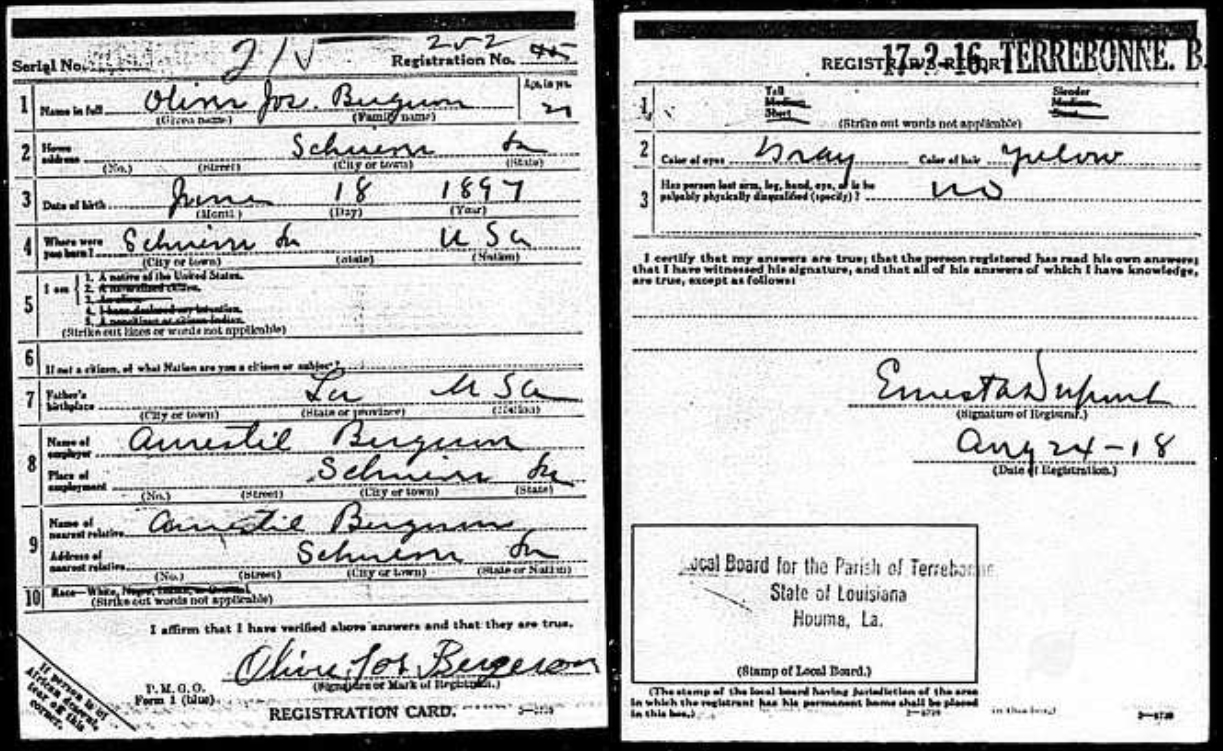 Serial No. 210 Registration No. 252 45
1 Name in full Oliver Jos. Bergeron Age, in yrs. 21
(Given name) (Family name)
2 Home address Schriever La
(No.) (Street) (City or town) (State)
3 Date of birth June 18 1897
(Month) (Day) (Year)
4 Where were you born? Schriever La U Sa
(City or town) (State) (Nation)
5 I am
1. A native of the United States.
2. A naturalized citizen.
3. An alien.
4. I have declared my intention.
5. A noncitizen or citizen Indian.
(Strike out lines or words not applicable)
6 If not a citizen, of what Nation are you a citizen or subject?
7 Father's birthplace La U Sa
(City or town) (State or province) (Nation)
8 Name of employer Bergeron
Place of employment Schriever La
(No.) (Street) (City or town) (State)
9 Name of nearest relative Bergeron
Address of nearest relative Schriever La
(No.) (Street) (City or town) (State or Nation)
10 Race—White, Negro, Indian, or Oriental.
(Strike out words not applicable)
I affirm that I have verified above answers and that they are true.
Olive Jos Bergeron
(Signature or Mark of Registrant.)
P. M. G. O.
Form 1 (blue)
REGISTRATION CARD.
If person is of African descent, tear off this corner.
17-2-16. TERREBONNE. B.
REGISTRAR'S REPORT
1 Tall Medium Short Slender Medium Stout
(Strike out words not applicable)
2 Color of eyes Gray Color of hair Yellow
3 Has person lost arm, leg, hand, eye, or is he palpably physically disqualified (specify)? no
I certify that my answers are true; that the person registered has read his own answers;
that I have witnessed his signature, and that all of his answers of which I have knowledge,
are true, except as follows:
Ernest A Dupont
(Signature of Registrar.)
Aug 24-18
(Date of Registration.)
Local Board for the Parish of Terrebonne
State of Louisiana
Houma, La.
(Stamp of Local Board.)
(The stamp of the local board having jurisdiction of the area
in which the registrant has his permanent home shall be placed
in this box.)
in this box.)